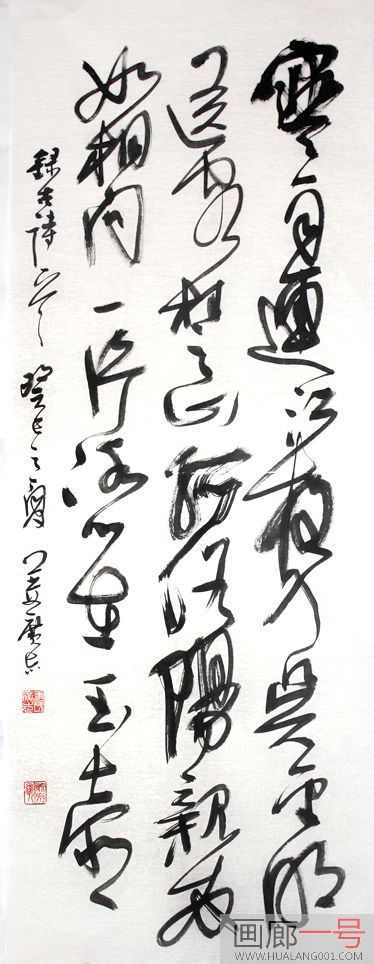 寒雨連江夜入吳平明
送客楚山孤洛陽親友
如相問一片冰心在玉壺
錄古詩一首 癸巳之夏
画廊一号
WWW.HUALANG001.COM